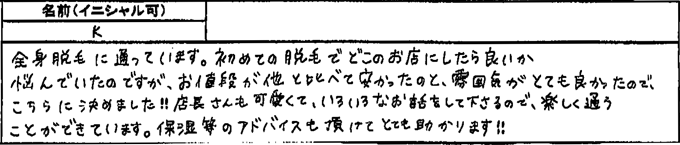 名前(イニシャル可)
K
全身脱毛に通っています。初めての脱毛でどこのお店にしたら良いか
悩んでいたのですが、お値段が他と比べて安かったのと、雰囲気がとても良かったので、
こちらに決めました!!店長さんも可愛くて、いろいろなお話をして下さるので、楽しく通う
ことができています。保湿等のアドバイスも頂けてとても助かります!!